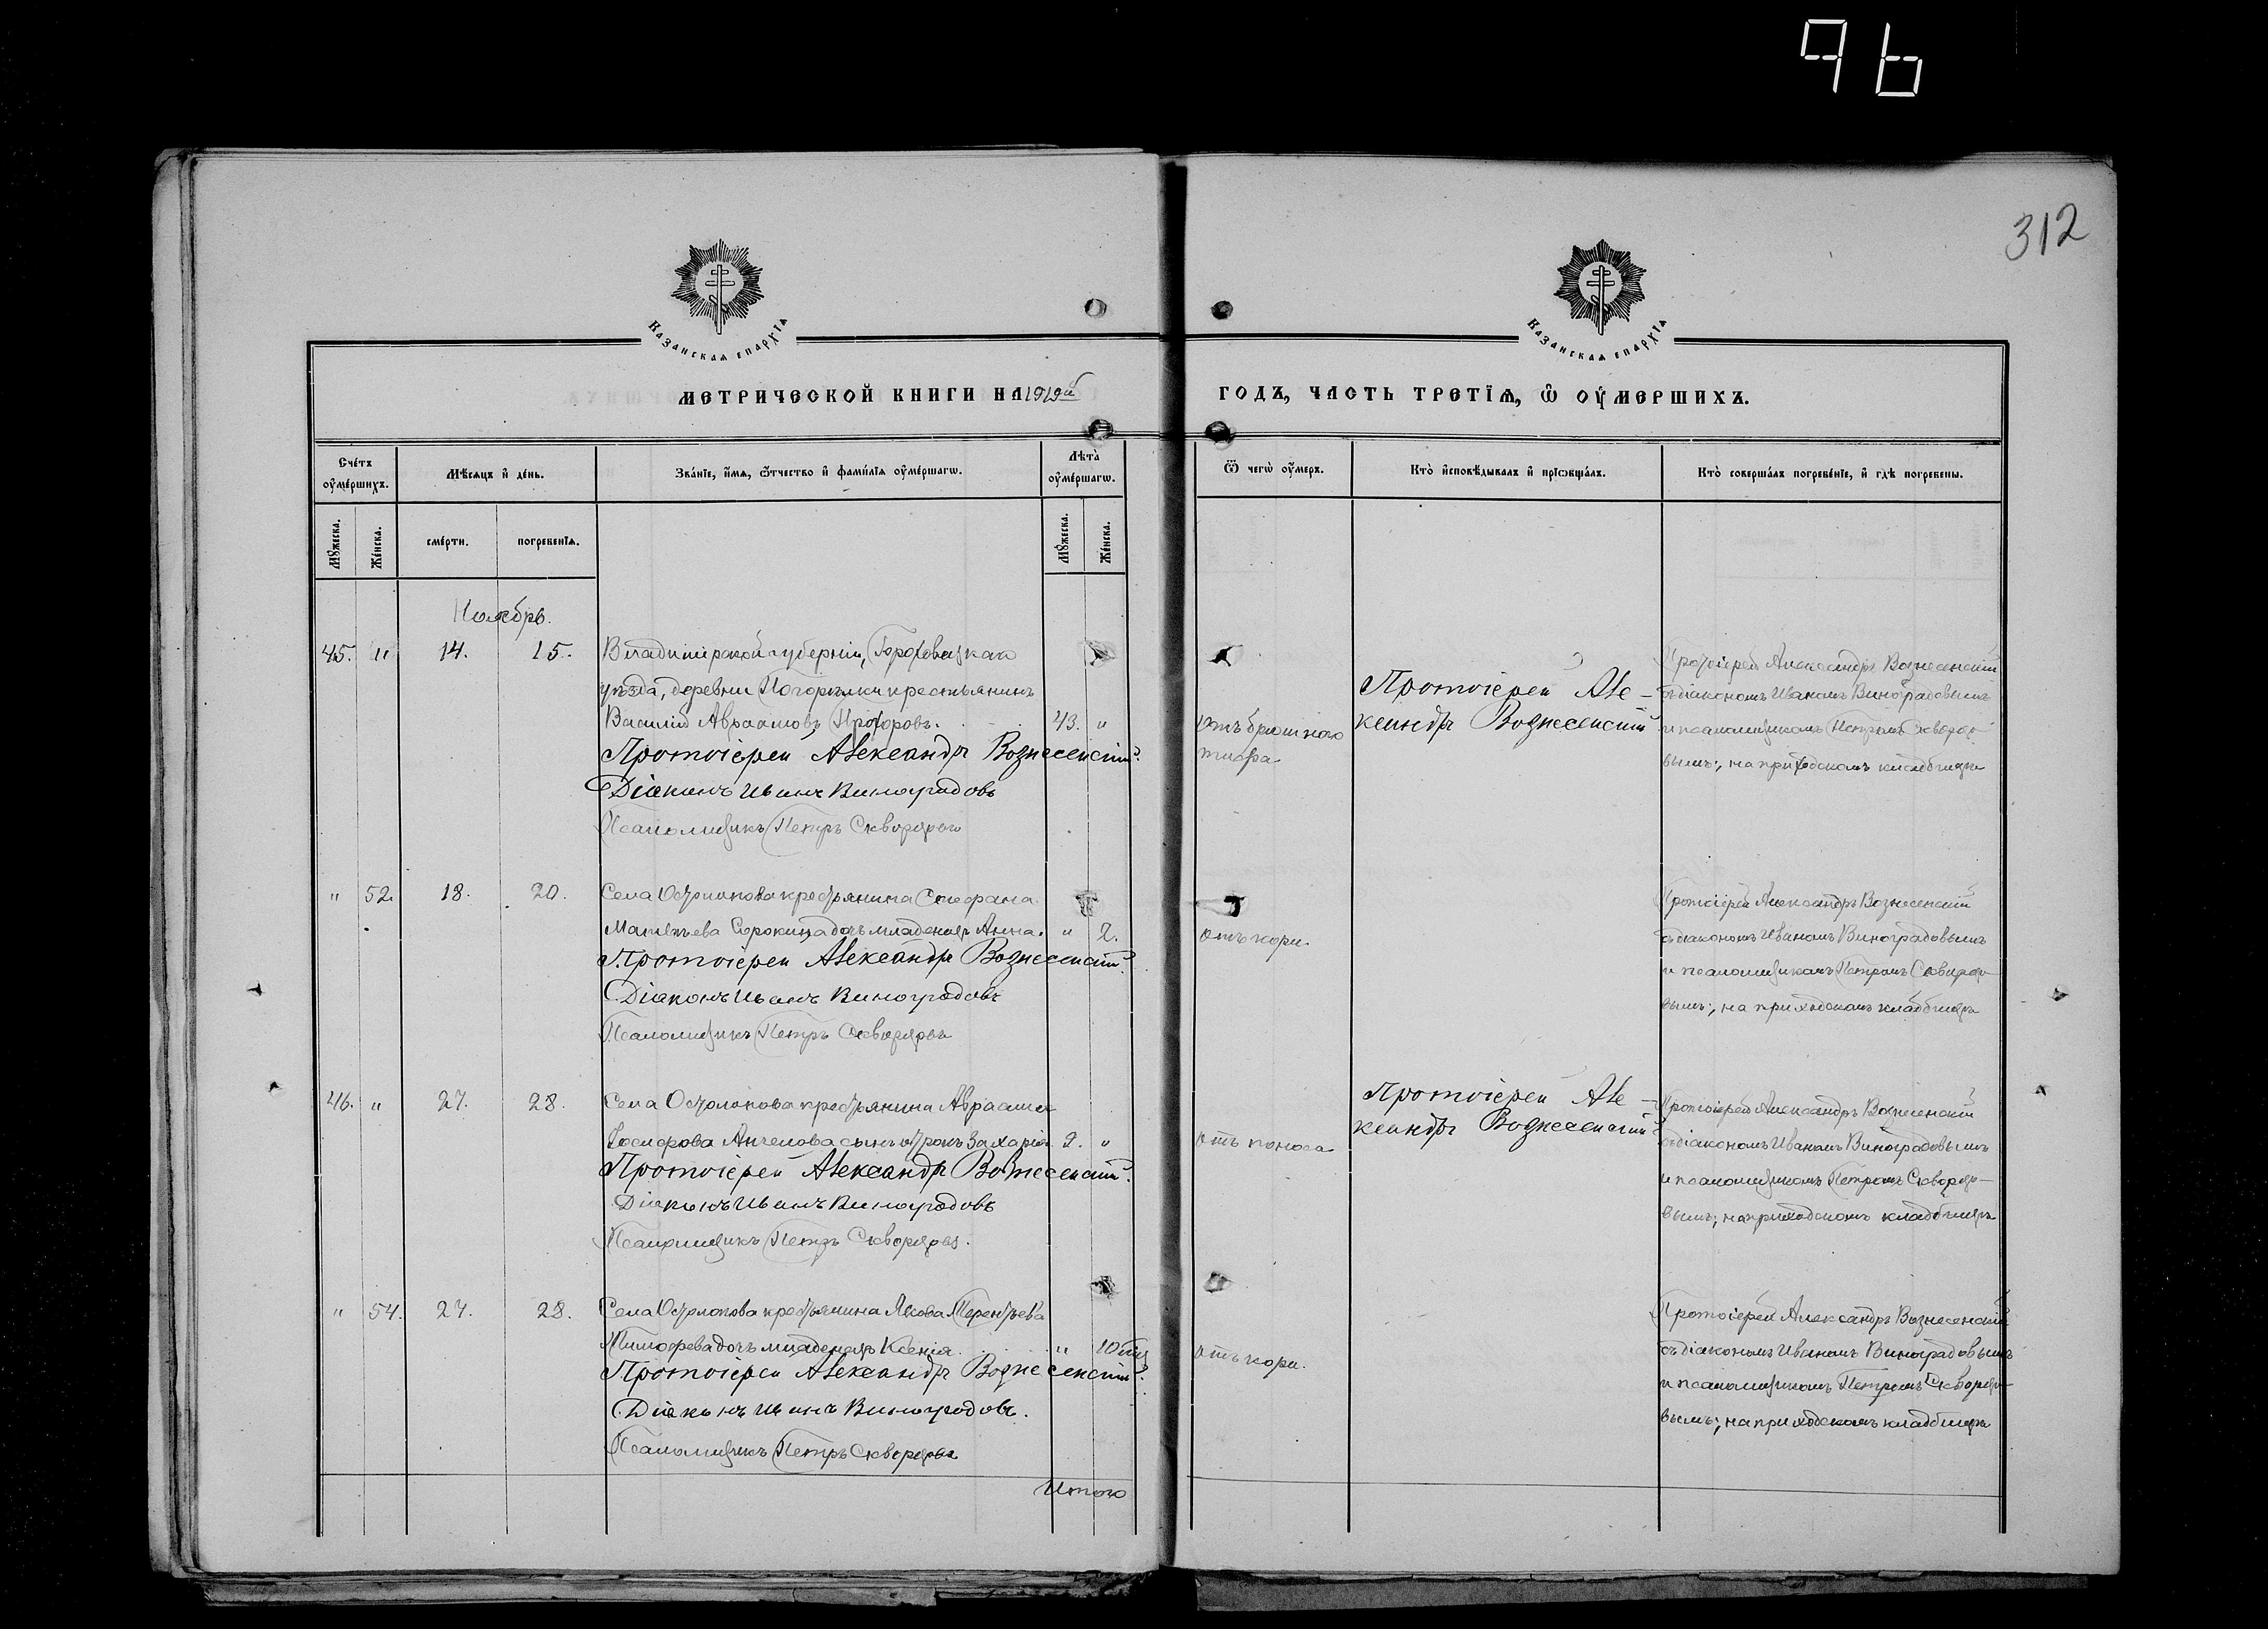 96
312
Казанскаѧ епархїѧ
Казанскаѧ епархїѧ
МЕТРИЧЕСКОЙ КНИГИ НА 1919й
ГОДЪ, ЧАСТЬ ТРЕТЇѦ, Ѿ ОУМЕРШИХЪ.
Счéтъ оу҆мéршихъ.
Мѣ́сѧцъ и҆ дéнь.
Звáнїе, и҆́мѧ, ѻ҆́тчество и҆ фами́лїѧ оу҆мéршагѡ.
Лѣ́та оу҆мéршагѡ.
Ѿ чегѡ̀ оу҆́меръ.
Кто̀ и҆сповѣ́дывалъ и҆ прїѡбща́лъ.
Кто̀ совершáлъ погребéнїе, и҆ гдѣ̀ погребены.
Мꙋ́жеска.
Же́нска.
смéрти.
погребенїѧ.
Мꙋ́жеска.
Же́нска.
Ноябрь.
45. " 14. 15. Владимірской губерніи, Гороховецкаго
уѣзда, деревни Погорѣлки крестьянинъ
Василій Авраамовъ Прохоровъ. 43. "
Протоіерей Александръ Вознесенскій.
Діаконъ Иванъ Виноградовъ
Псаломщикъ Петръ Скворцовъ
отъ брюшного
тифа
Протоіерей Але-
ксандръ Вознесенскій
Протоіерей Александръ Вознесенскій
съ діакономъ Иваномъ Виноградовымъ
и псаломщикомъ Петромъ Скворцо-
вымъ; на приходскомъ кладбищѣ
" 52. 18. 20. Села крестьянина Стефана
Сорокина дочь младенецъ Анна. " 2.
Протоіерей Александръ Вознесенскій.
Діаконъ Иванъ Виноградовъ
Псаломщикъ Петръ Скворцовъ
отъ кори.
Протоіерей Александръ Вознесенскій
съ діакономъ Иваномъ Виноградовымъ
и псаломщикомъ Петромъ Скворцо-
вымъ; на приходскомъ кладбищѣ
46. " 27. 28. Села крестьянина Авраама
Іосифова сынъ отрокъ Захарія "
Протоіерей Александръ Вознесенскій.
Діаконъ Иванъ Виноградовъ
Псаломщикъ Петръ Скворцовъ.
отъ поноса
Протоіерей Але-
ксандръ Вознесенскій
Протоіерей Александръ Вознесенскій
съ діакономъ Иваномъ Виноградовымъ
и псаломщикомъ Петромъ Скворцо-
вымъ; на приходскомъ кладбищѣ
" 54. 27. 28. Села крестьянина Якова Терентьева
Тимофеева дочь младенецъ Ксенія. "
Протоіерей Александръ Вознесенскій.
Діаконъ Иванъ Виноградовъ.
Псаломщикъ Петръ Скворцовъ
отъ кори.
Протоіерей Александръ Вознесенскій
съ діакономъ Иваномъ Виноградовымъ
и псаломщикомъ Петромъ Скворцо-
вымъ; на приходскомъ кладбищѣ
Итого